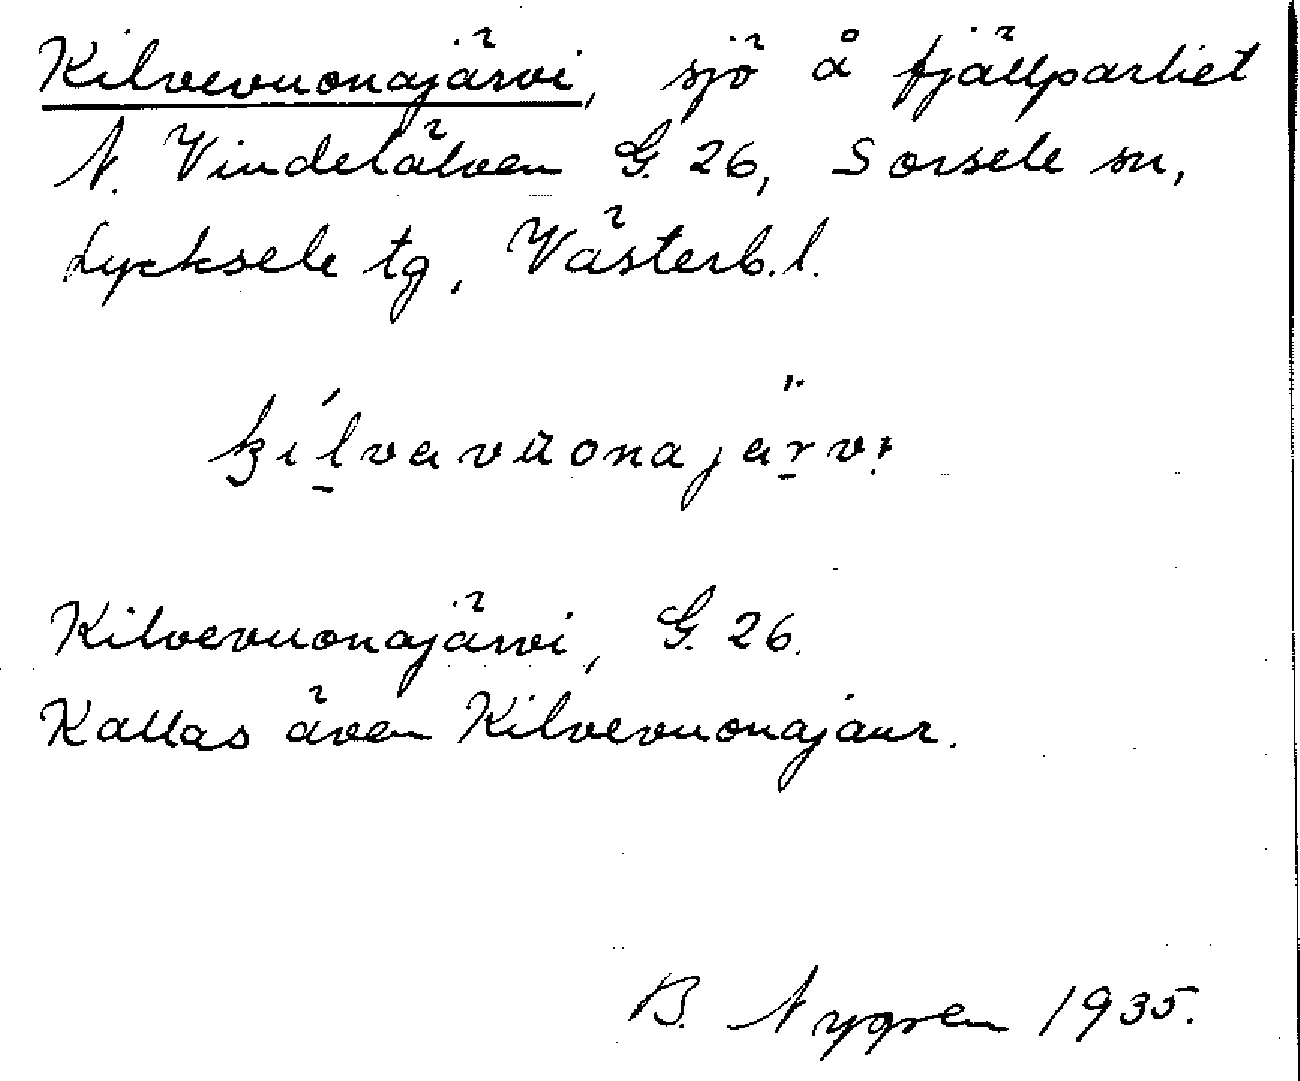 Kilvevuonajärvi, sjö å fjällpartiet
N. Vindelälven G. 26, Sorsele sn,
Lycksele tg, Västerb.l.
kilvavuonajärvi
Kilvevuonajärvi, G. 26.
Kallas även Kilvevuonajaur.
B. Nygren 1935.